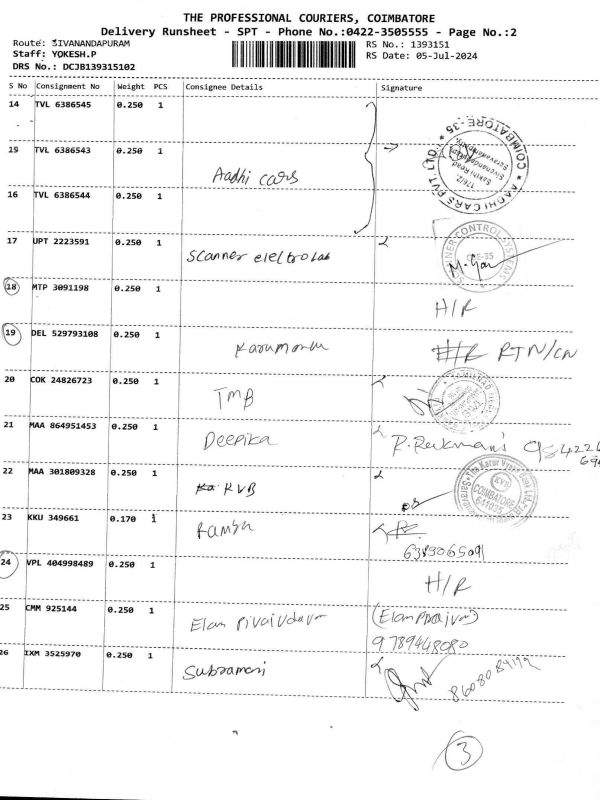 THE PROFESSIONAL COURIERS, COIMBATORE
Delivery Runsheet - SPT - Phone No.:0422-3505555 - Page No.:2
Route: SIVANANDAPURAM
RS No.: 1393151
Staff: YOKESH.P
RS Date: 05-Jul-2024
DRS No.: DCJB139315102
S No Consignment No Weight PCS Consignee Details Signature
14 TVL 6386545 0.250 1
19 TVL 6386543 0.250 1
Aadhi cars
COIMBATORE-35 * AADHI CARS PVT. LTD.
16 TVL 6386544 0.250 1
17 UPT 2223591 0.250 1 Scanner elektrolab
CONTROL SYSTEMS
18 MTP 3091198 0.250 1
H/R
19 DEL 529793108 0.250 1
H/R RTN/CN
20 COK 24826723 0.250 1 TMB
21 MAA 864951453 0.250 1 Deepika R. Rukmani
22 MAA 301809328 0.250 1 KVB
COIMBATORE
23 KKU 349661 0.170 1 Ramya
24 VPL 404998489 0.250 1
H/R
25 CMM 925144 0.250 1 Elam
9789448080
26 IXM 3525970 0.250 1 Subramani
3